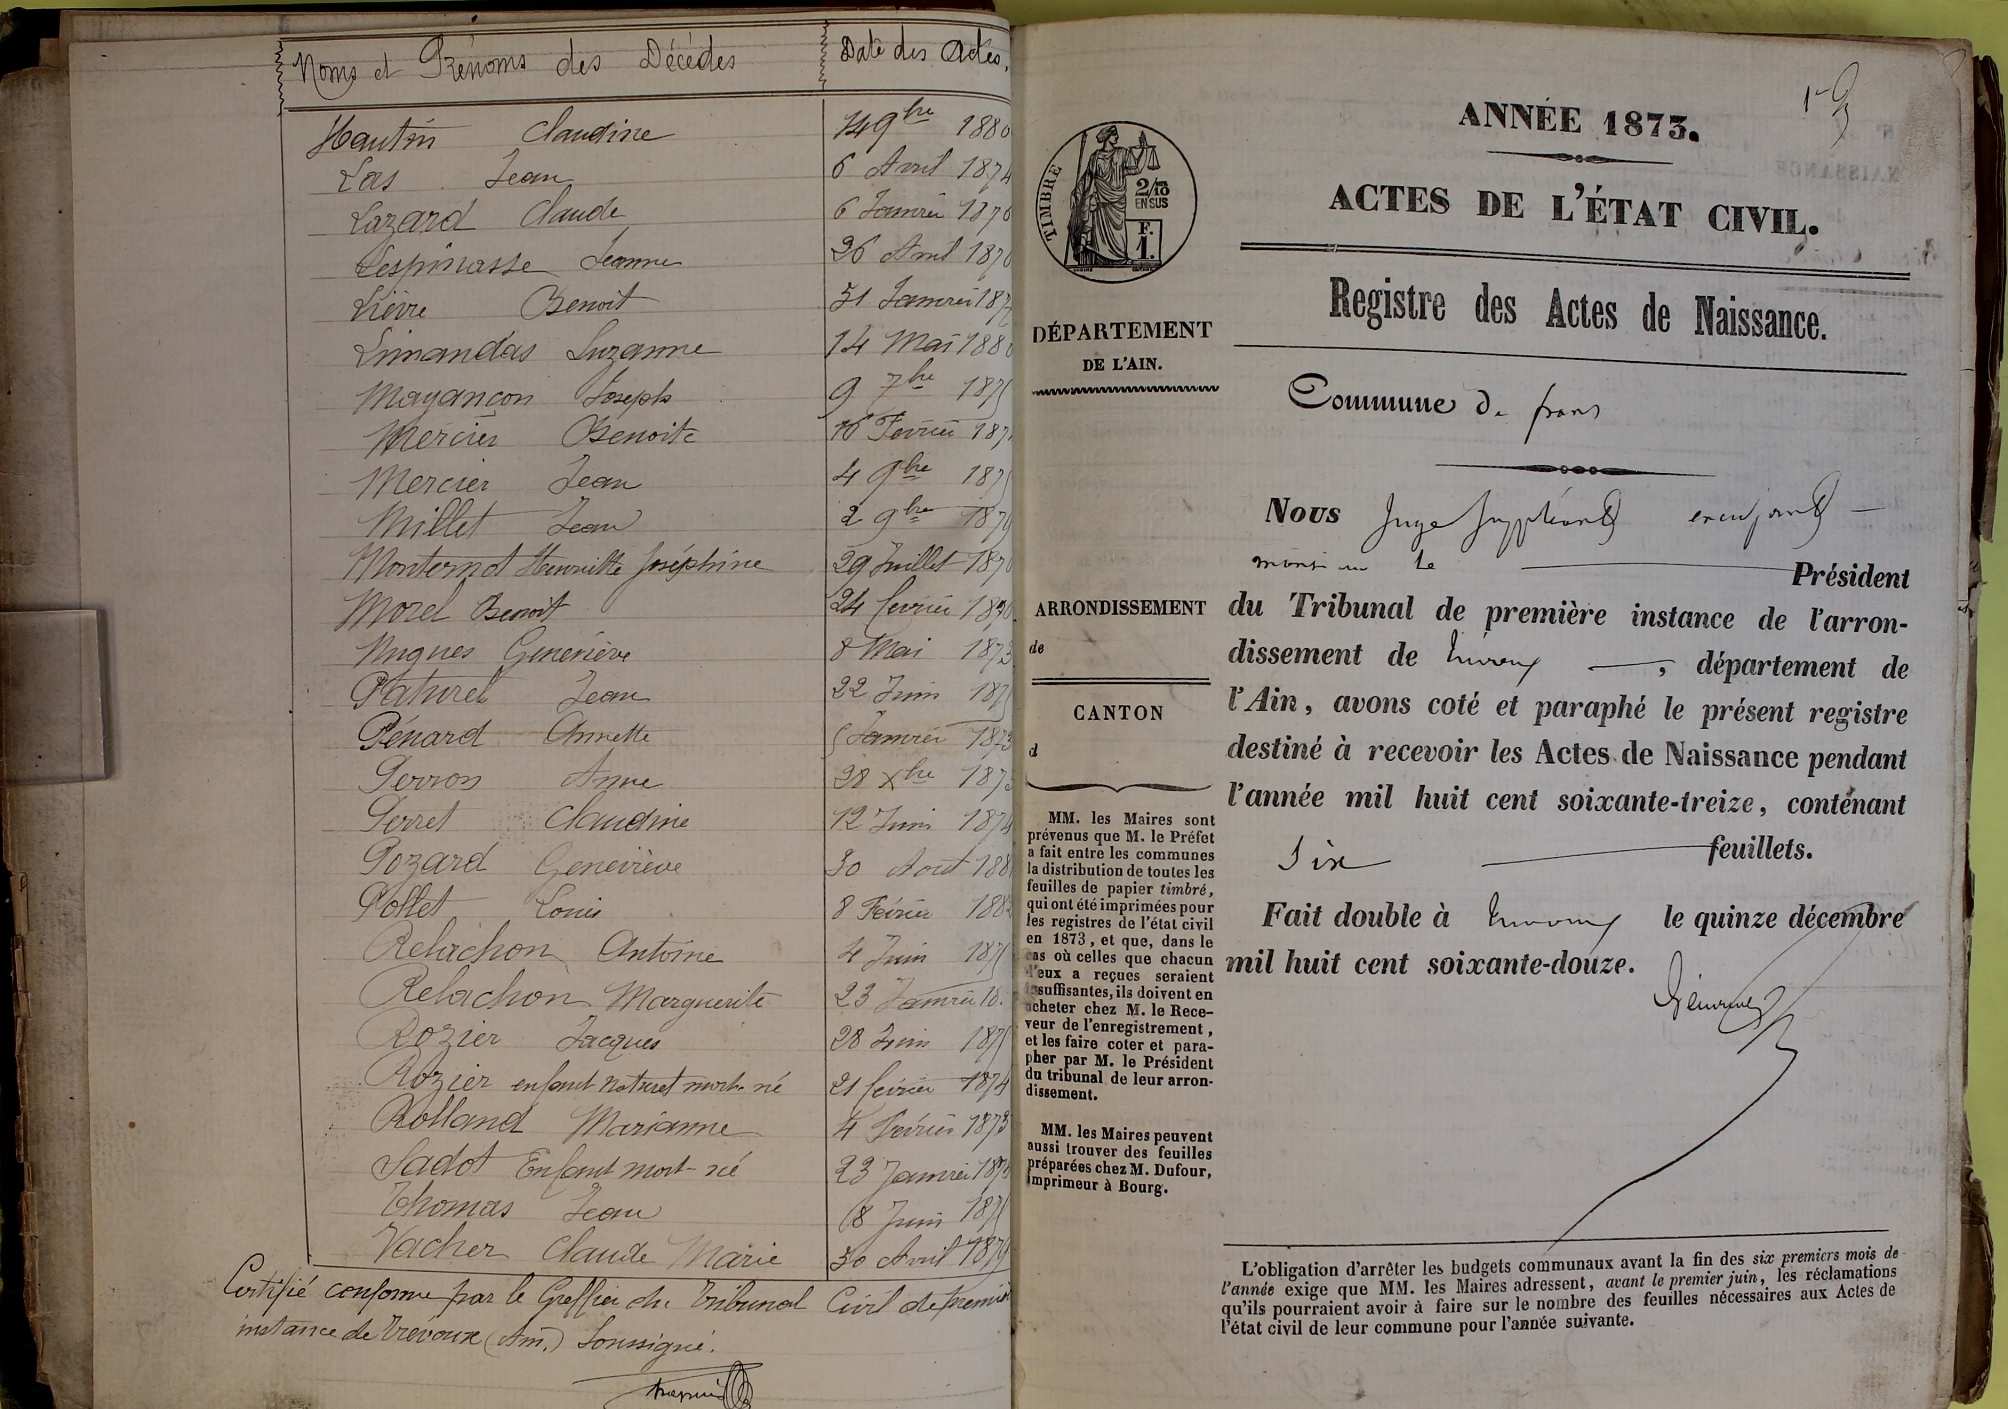 Noms et Prénoms des Décédés Date des Actes.
Hautin Claudine 14 9bre 1880
Las Jean 6 Avril 1874
Lazard Claude 6 Janvier 1876
Lespinasse Jeanne 26 Avril 1876
Lièvre Benoit 31 Janvier 187
Limandas Suzanne 14 Mai 1880
Mayançon Joseph 9 7bre 1875
Mercier Benoite 16 Février 187
Mercier Jean 4 9bre 1875
Millet Jean 2 9bre 1879
Monternot Henriette Joséphine 29 Juillet 1876
Morel Benoit 24 fevrier 1876
Nugues Geneviève 8 Mai 1873
Paturel Jean 22 Juin 1875
Pénard Annette 5 Janvier 1873
Perron Anne 28 Xbre 1873
Perret Claudine 12 Juin 1874
Pozard Geneviève 30 Aout 188
Pollet Louis 8 Février 1882
Relachon Antoine 4 Juin 1875
Relachon Marguerite 23 Janvier 18
Rozier Jacques 28 Juin 1875
Rozier enfant naturel mort-né 21 fevrier 1874
Rolland Marianne 4 Février 1873
Sadot Enfant mort-né 23 Janvier 187
Thomas Jean 8 Juin 1875
Vacher Claude Marie 30 Avril 1879
Certifié conforme par le Greffier du Tribunal Civil de premiè
instance de Trévoux (Ain.) Soussigné.
TIMBRE
2/10
EN SUS
F.
1.
DÉPARTEMENT
DE L'AIN.
ARRONDISSEMENT
de
CANTON
d
MM. les Maires sont
prévenus que M. le Préfet
a fait entre les communes
la distribution de toutes les
feuilles de papier timbré,
qui ont été imprimées pour
les registres de l'état civil
en 1873, et que, dans le
cas où celles que chacun
d'eux a reçues seraient
insuffisantes, ils doivent en
acheter chez M. le Rece-
veur de l'enregistrement,
et les faire coter et para-
pher par M. le Président
du tribunal de leur arron-
dissement.
MM. les Maires peuvent
aussi trouver des feuilles
préparées chez M. Dufour,
imprimeur à Bourg.
ANNÉE 1873.
ACTES DE L'ÉTAT CIVIL.
Registre des Actes de Naissance.
Commune de frans
Nous Juge Suppléant
monsieur le Président
du Tribunal de première instance de l'arron-
dissement de Trévoux, département de
l'Ain, avons coté et paraphé le présent registre
destiné à recevoir les Actes de Naissance pendant
l'année mil huit cent soixante-treize, contenant
Six feuillets.
Fait double à Trévoux le quinze décembre
mil huit cent soixante-douze.
L'obligation d'arrêter les budgets communaux avant la fin des six premiers mois de
l'année exige que MM. les Maires adressent, avant le premier juin, les réclamations
qu'ils pourraient avoir à faire sur le nombre des feuilles nécessaires aux Actes de
l'état civil de leur commune pour l'année suivante.